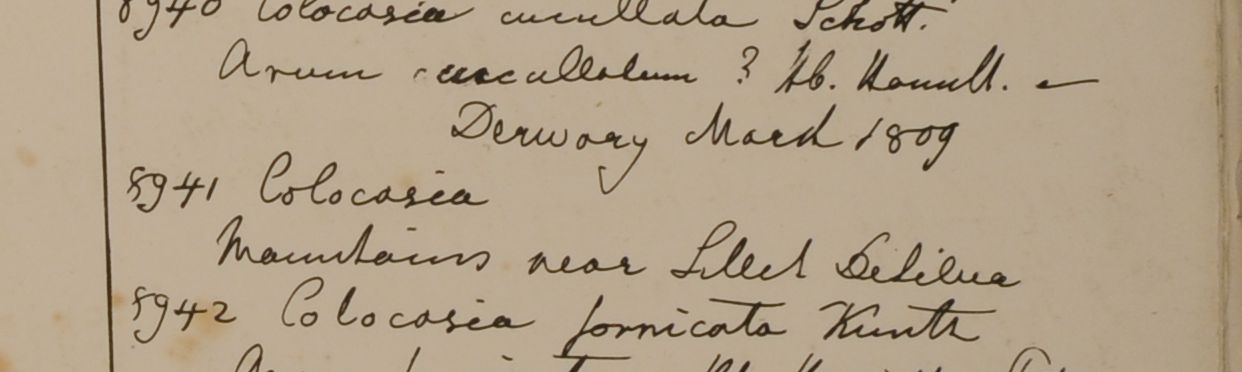 8940 Colocasia cucullata Schott.
Arum cuccullatum ? Hb. Hamilt. —
Derwary March 1809
8941 Colocasia
Mountains near Sillet DeSilva
8942 Colocasia fornicata Kunth